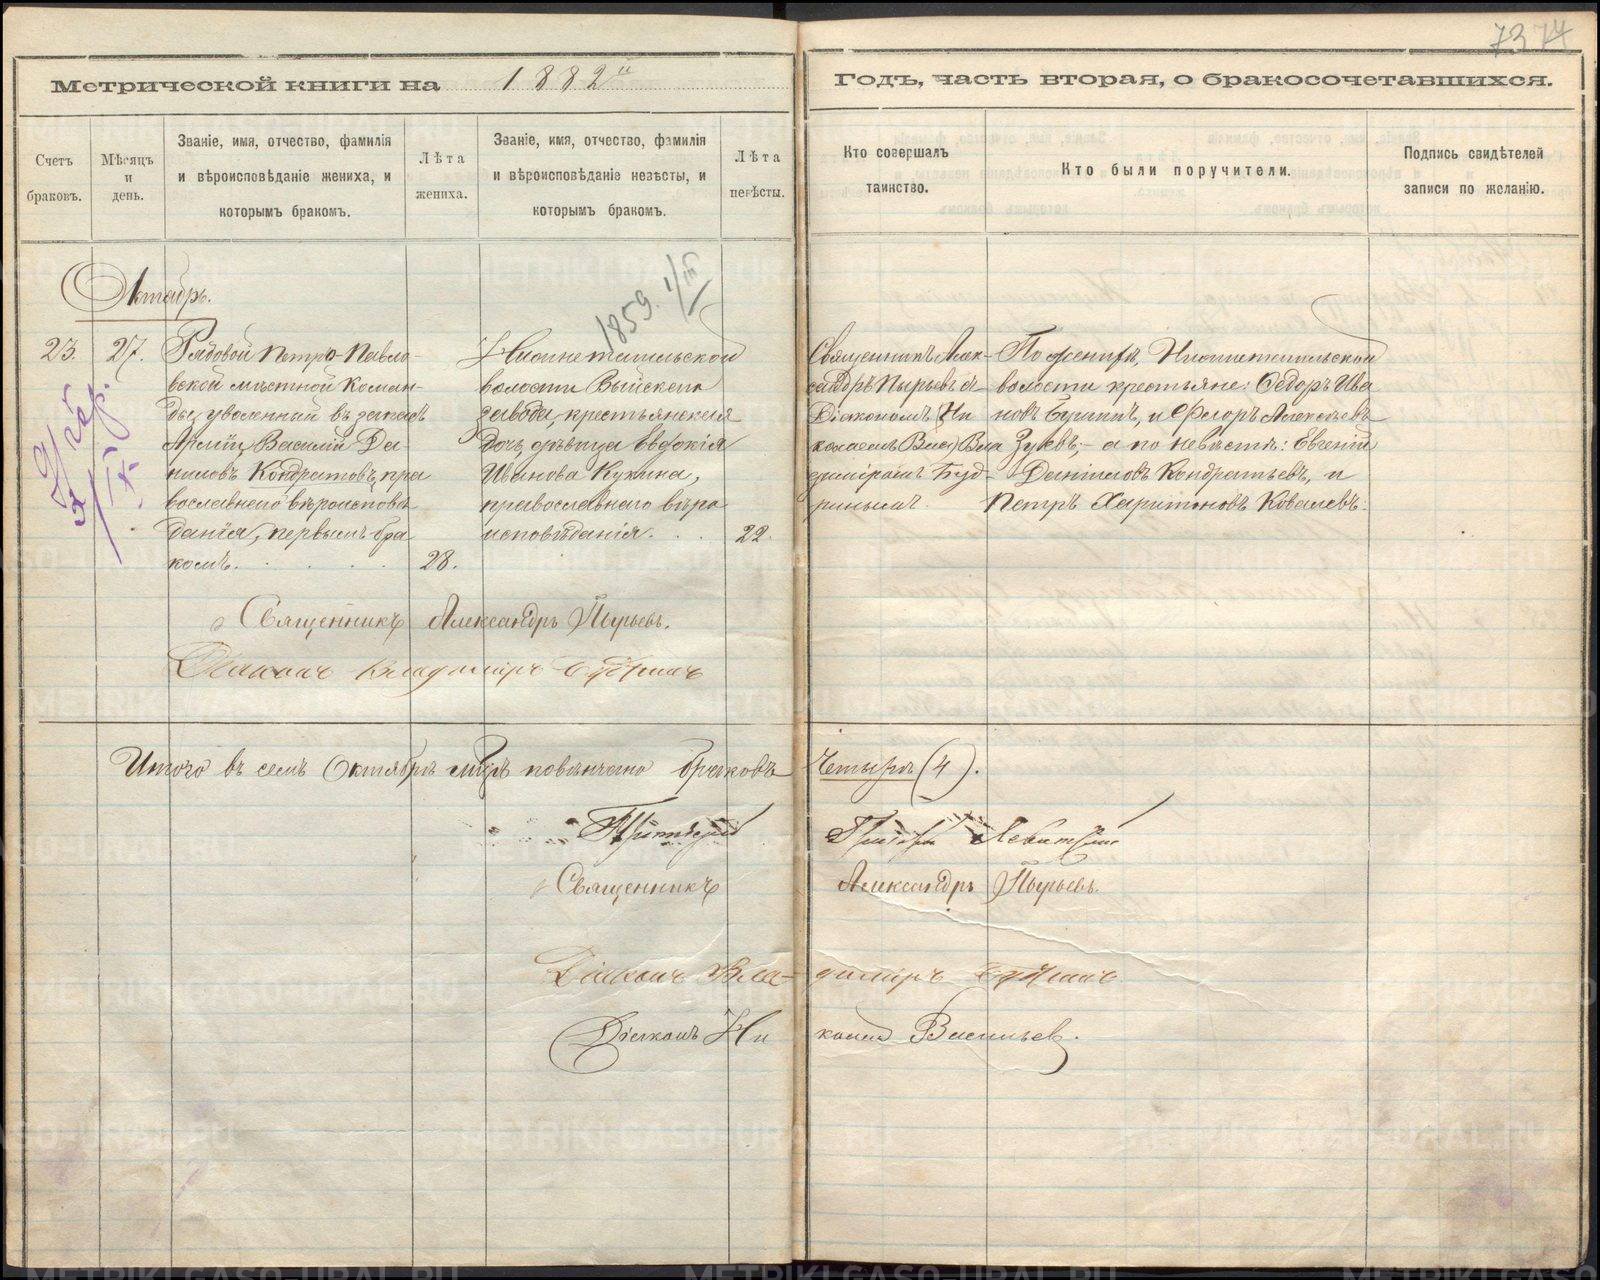 7374
Метрической книги на 1882й
Годъ, часть вторая, о бракосочетавшихся.
Счетъ браковъ.
Мѣсяцъ и день.
Званіе, имя, отчество, фамилія
и вѣроисповѣданіе жениха, и
которымъ бракомъ.
Лѣта
жениха.
Званіе, имя, отчество, фамилія
и вѣроисповѣданіе невѣсты, и
которымъ бракомъ.
Лѣта
невѣсты.
Кто совершалъ
таинство.
Кто были поручители.
Подпись свидѣтелей
записи по желанію.
Октябрь.
23.
27.
Рядовой Петро-Павло-
вской мѣстной коман-
ды, уволенный въ запасъ
Арміи, Василій Да-
ниловъ Кондратовъ, пра
вославнаго вѣроисповѣ
данія, первымъ бра
комъ.
28.
1859. 1/III
Нижнетагильской
волости Выйскаго
завода, крестьянская
дочь, дѣвица Евдокія
Иванова Кухина,
православнаго вѣро
исповѣданія.
22.
Священникъ Алек-
сандръ Пырьевъ съ
Діакономъ Ни
колаемъ Вла
диміромъ Буд-
ринымъ.
По женихѣ, Нижнетагильской
волости крестьяне: Ѳедоръ Ива
новъ и Флоръ Алексѣевъ
Зуевъ; а по невѣстѣ: Евгеній
Даниловъ Кондратьевъ, и
Петръ Харитоновъ Ковалевъ.
Священникъ Александръ Пырьевъ.
Діаконъ Владиміръ
Итого въ семъ Октябрѣ мцѣ повѣнчано браковъ четыре (4).
Священникъ Александръ Пырьевъ.
Діаконъ Вла-диміръ
Діаконъ Николай Васильев.
METRIKI.GASO-URAL.RU